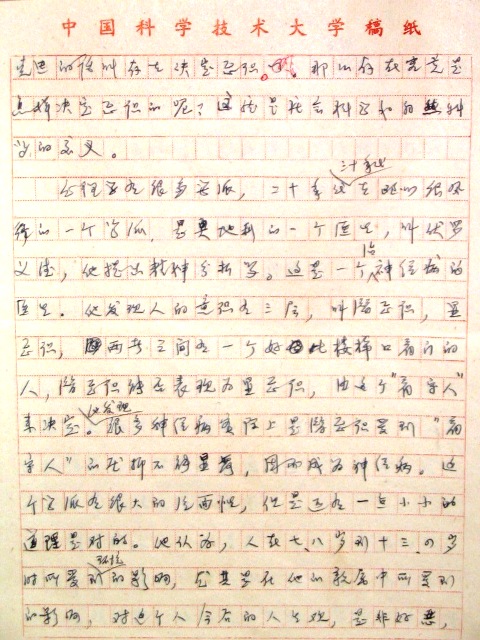 中国科学技术大学稿纸
克思的信叫存在决定意识。那么存在究竟是
怎样决定意识的呢？这就是社会科学和自然科
学的交叉。
心理学有很多学派，二十年代三十年代在欧洲很风
行的一个学派，是奥地利的一个医生，叫伏罗
义德，他提出精神分析学。这是一个治神经病的
医生。他发现人的意识有三层，叫潜意识，显
意识，两者之间有一个好比楼梯口看门的
人，潜意识能否表现为显意识，由这个“看守人”
来决定。他发现很多神经病实际上是潜意识受到“看
守人”的压抑不能显露，因而成为神经病。这
个学派有很大的片面性，但是还有一点小小的
道理是对的。他认为，人在七、八岁到十三、四岁
时所受到环境的影响，尤其是在他的家庭中所受到
的影响，对这个人今后的人生观，是非好恶，